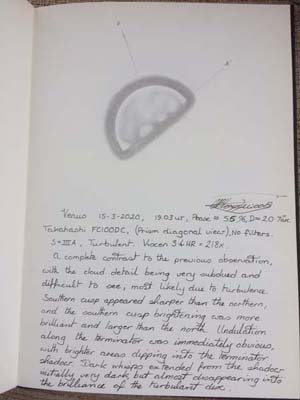 Venus 15-3-2020, 19.03 UT, Phase # 55 %, D= 20.7 sec
Takahashi FC100DC, (Prism diagonal view), No filters.
S=IIIA, Turbulent. Vixen 3.4 HR = 218x.
A complete contrast to the previous observation,
with the cloud detail being very subdued and
difficult to see, most likely due to turbulence.
Southern cusp appeared sharper than the northern,
and the southern cusp brightening was more
brilliant and larger than the north. Undulation
along the terminator was immediately obvious,
with brighter areas dipping into the terminator
shadow. Dark whisps extended from the shadow
initially very dark but almost disappearing into
the brilliance of the turbulent disc.